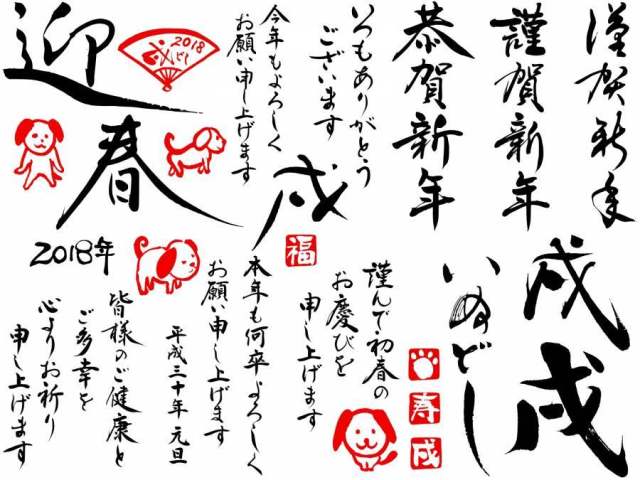 謹賀新年
謹賀新年
恭賀新年
いつもありがとう
ございます
今年もよろしく
お願い申し上げます
2018
戌どし
迎春
戌
福
2018年
戌
戌
いぬどし
謹んで初春の
お慶びを
申し上げます
寿
戌
本年も何卒よろしく
お願い申し上げます
平成三十年 元旦
皆様のご健康と
ご多幸を
心よりお祈り
申し上げます